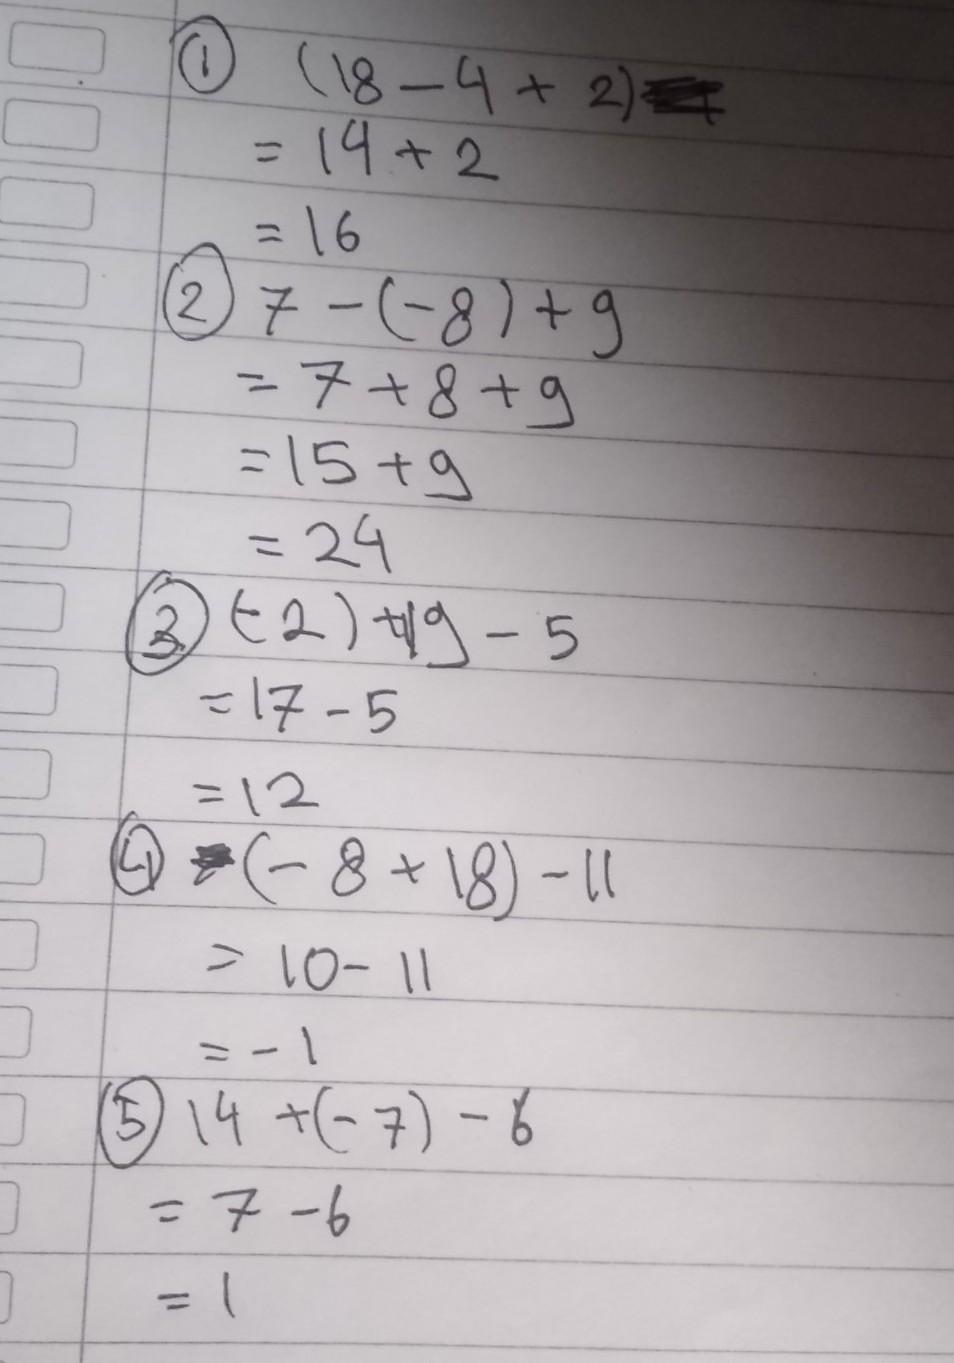 ① (18 - 4 + 2)
= 14 + 2
= 16
② 7 - (-8) + 9
= 7 + 8 + 9
= 15 + 9
= 24
③ (-2) + 19 - 5
= 17 - 5
= 12
④ (- 8 + 18) - 11
= 10 - 11
= - 1
⑤ 14 + (- 7) - 6
= 7 - 6
= 1